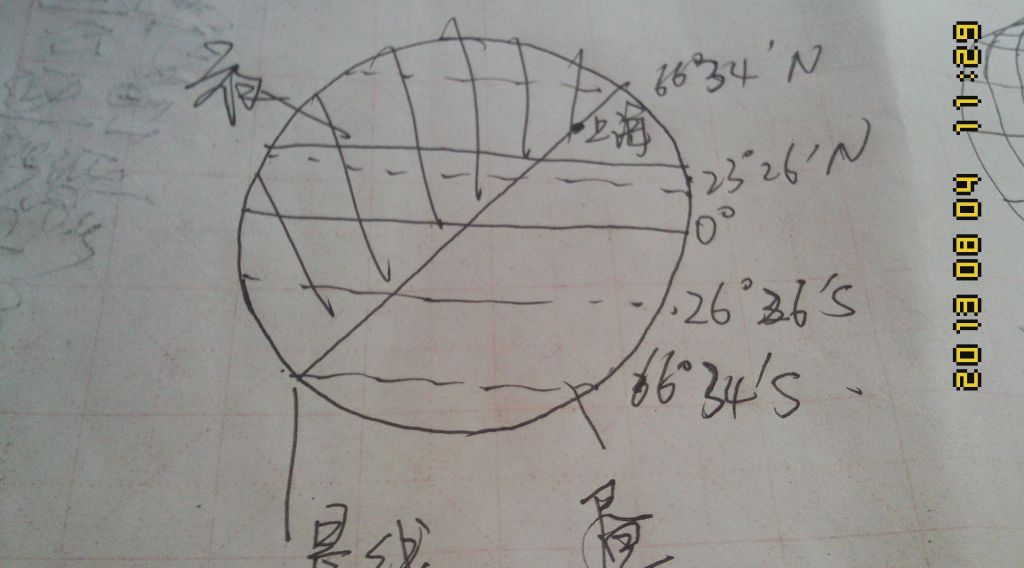 夜
66°34'N
上海
23°26'N
0°
26°26'S
66°34'S
晨线
昼
2013 08 04 11:29